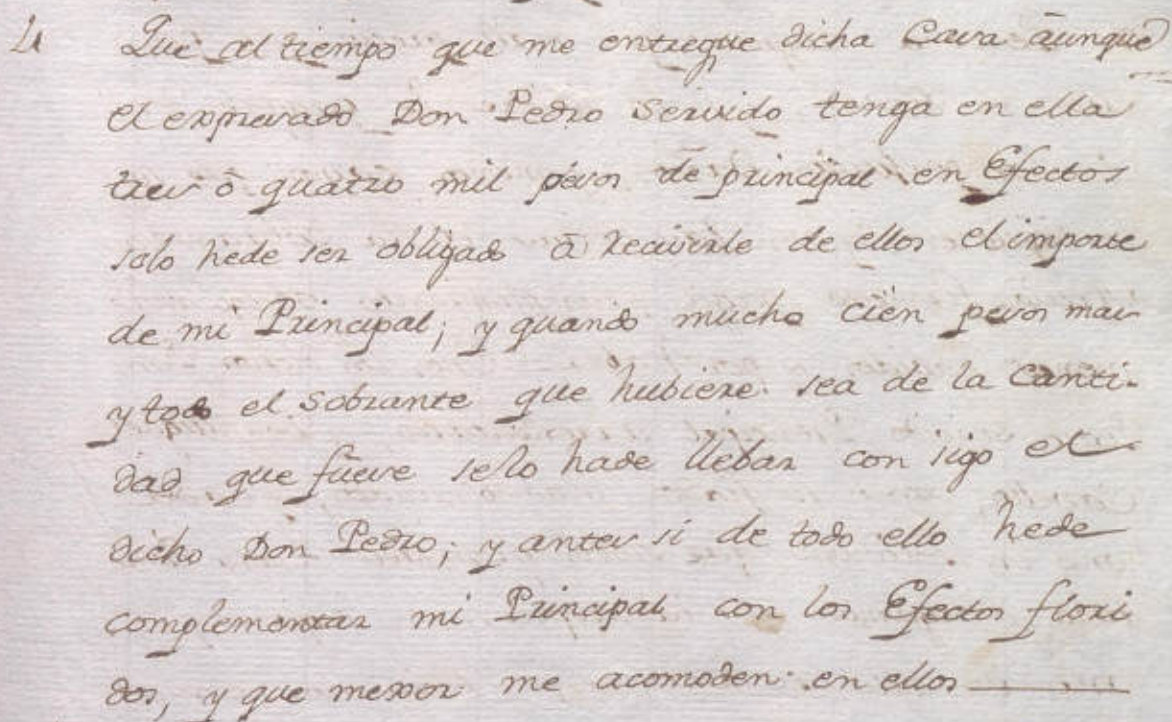 4 Que al tiempo que me entregue dicha Casa aunque
el expresado Don Pedro Servido tenga en ella
tres ô quatro mil pesos de principal en Efectos
solo hede ser obligado â recivirle de ellos el importe
de mi Principal; y quando mucho cien pesos mas
y todo el sobrante que hubiere sea de la canti-
dad que fuere selo hade llebar con sigo el
dicho Don Pedro; y antes si de todo ello hede
complementar mi Principal con los Efectos flori
dos, y que mexor me acomoden en ellos